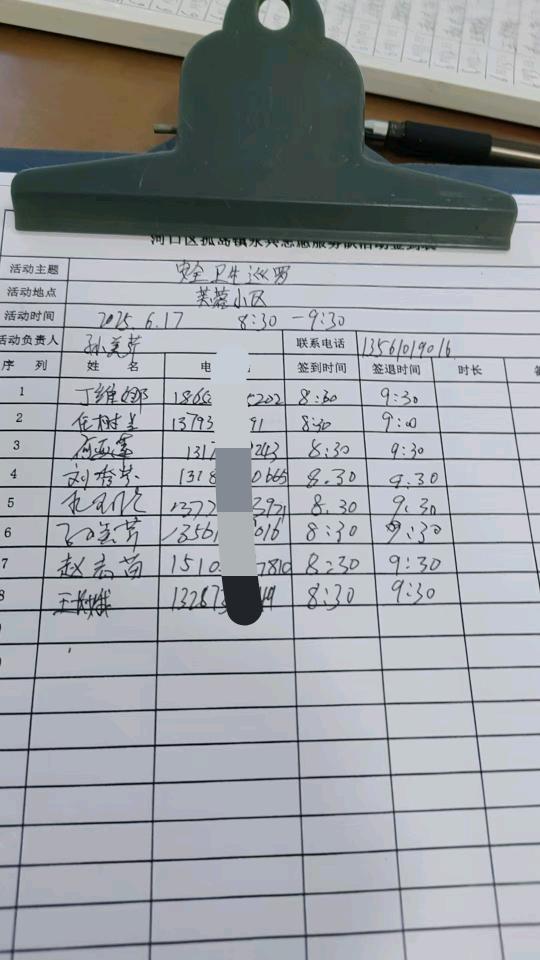 河口区孤岛镇永兴志愿服务队活动签到表
活动主题 安全卫生巡罗
活动地点 芙蓉小区
活动时间 2025.6.17 8:30 — 9:30
活动负责人 孙美芹 联系电话 13561019016
序 列 姓 名 电 签到时间 签退时间 时长
1 丁维娜 186 5202 8:30 9:30
2 任树兰 13793 91 8:30 9:00
3 131 243 8:30 9:30
4 刘秀芹 1318 0665 8.30 9:30
5 1372 3921 8.30 9:30
6 孙美芹 13561 016 8:30 9:30
7 赵志苗 1510 7810 8:30 9:30
8 王 13287 8:30 9:30